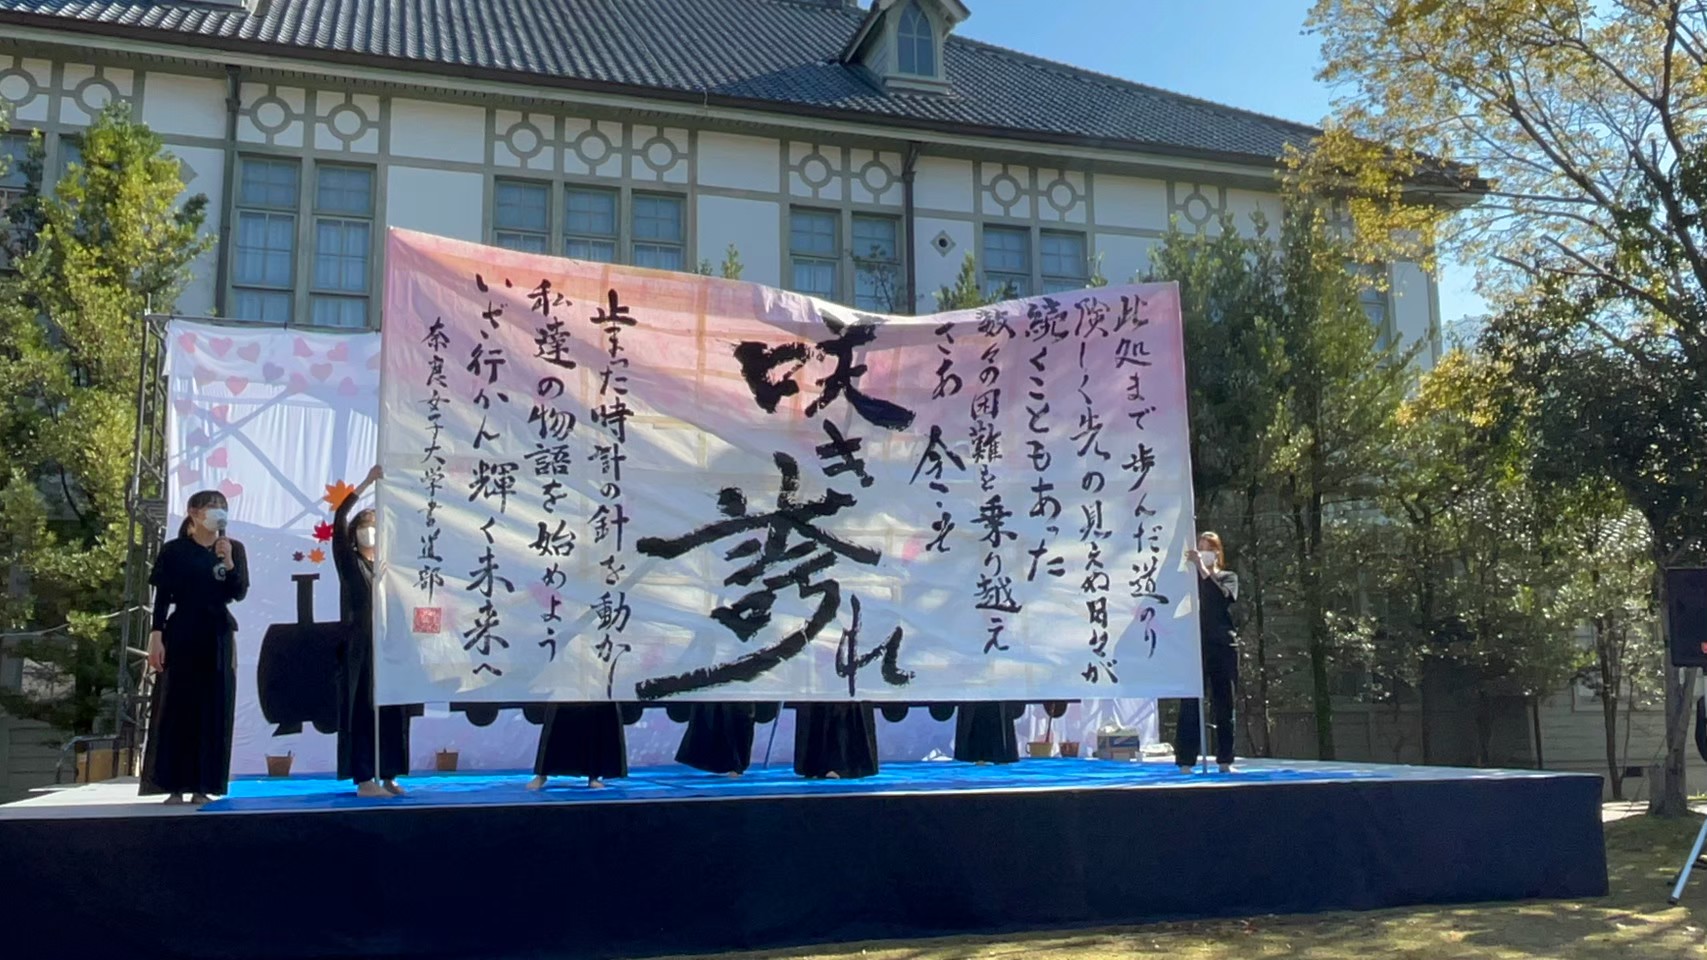 此処まで歩んだ道のり
険しく先の見えぬ日々が
続くこともあった
数々の困難を乗り越え
さあ 今こそ
咲き誇れ
止まった時計の針を動かし
私達の物語を始めよう
いざ行かん輝く未来へ
奈良女子大学書道部